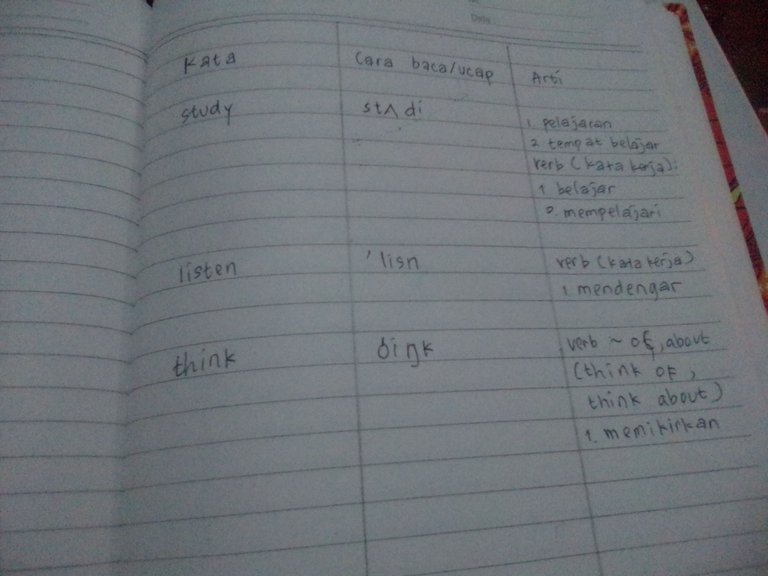 Date
Kata Cara baca/ucap Arti
study stʌdi 1. pelajaran
2. tempat belajar
verb (kata kerja):
1. belajar
2. mempelajari
listen 'lisn verb (kata kerja)
1. mendengar
think ðiŋk verb ~ of, about
(think of,
think about)
1. memikirkan